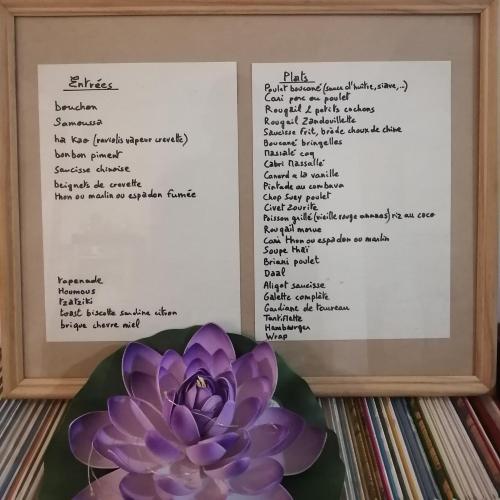 Entrées
bouchon
Samoussa
ha kao (raviolis vapeur crevette)
bonbon piment
Saucisse chinoise
beignets de crevette
thon ou marlin ou espadon fumée
tapenade
Houmous
tzatziki
toast biscotte sardine citron
brique chevre miel
Plats
Poulet boucané (sauce d'huître, siave,...)
Cari porc ou poulet
Rougail 2 petits cochons
Rougail Zandouillette
Saucisse frit, brède choux de chine
Boucané bringelles
Massalé coq
Cabri Massallé
Canard a la vanille
Pintade au combava
Chop Suey poulet
Civet Zourite
Poisson grillé (vieille rouge ananas) riz au coco
Rougail morue
Cari thon ou espadon ou marlin
Soupe thaï
Briani poulet
Daal
Aligot saucisse
Galette complète
Gardiane de taureau
Tartiflette
Hamburger
Wrap